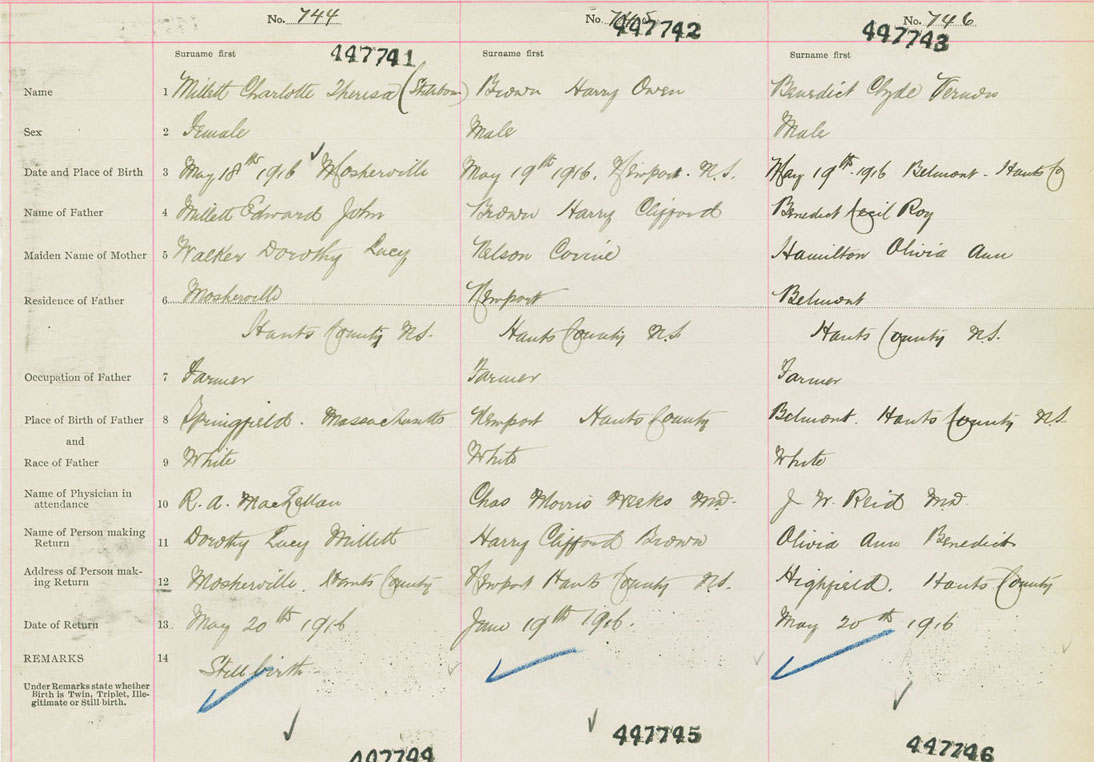 No. 744
No. 745
No. 746
447741
447742
447743
Surname first
Surname first
Surname first
Name 1 Millett Charlotte Theresa (Stillborn) Brown Harry Owen Benedict Clyde Vernon
Sex 2 Female Male Male
Date and Place of Birth 3 May 18th 1916 Mosherville May 19th 1916. Newport. N.S. May 19th. 1916 Belmont. Hants Co
Name of Father 4 Millett Edward John Brown Harry Clifford Benedict Cecil Roy
Maiden Name of Mother 5 Walker Dorothy Lucy Nelson Corrine Hamilton Olivia Ann
Residence of Father 6 Mosherville Newport Belmont
Hants County N.S. Hants County N.S Hants County N.S.
Occupation of Father 7 Farmer Farmer Farmer
Place of Birth of Father 8 Springfield. Massachusetts Newport Hants County Belmont. Hants County N.S.
and
Race of Father 9 White White White
Name of Physician in
attendance 10 R. A. MacKellan Chas Morris Weeks M.D. J W. Reid M.D.
Name of Person making
Return 11 Dorothy Lucy Millett Harry Clifford Brown Olivia Ann Benedict
Address of Person mak-
ing Return 12 Mosherville. Hants County Newport Hants County N.S. Highfield. Hants County
Date of Return 13 May 20th 1916 June 19th 1916. May 20th 1916
REMARKS 14 Still birth
Under Remarks state whether
Birth is Twin, Triplet, Ille-
gitimate or Still-birth.
447744
447745
447746